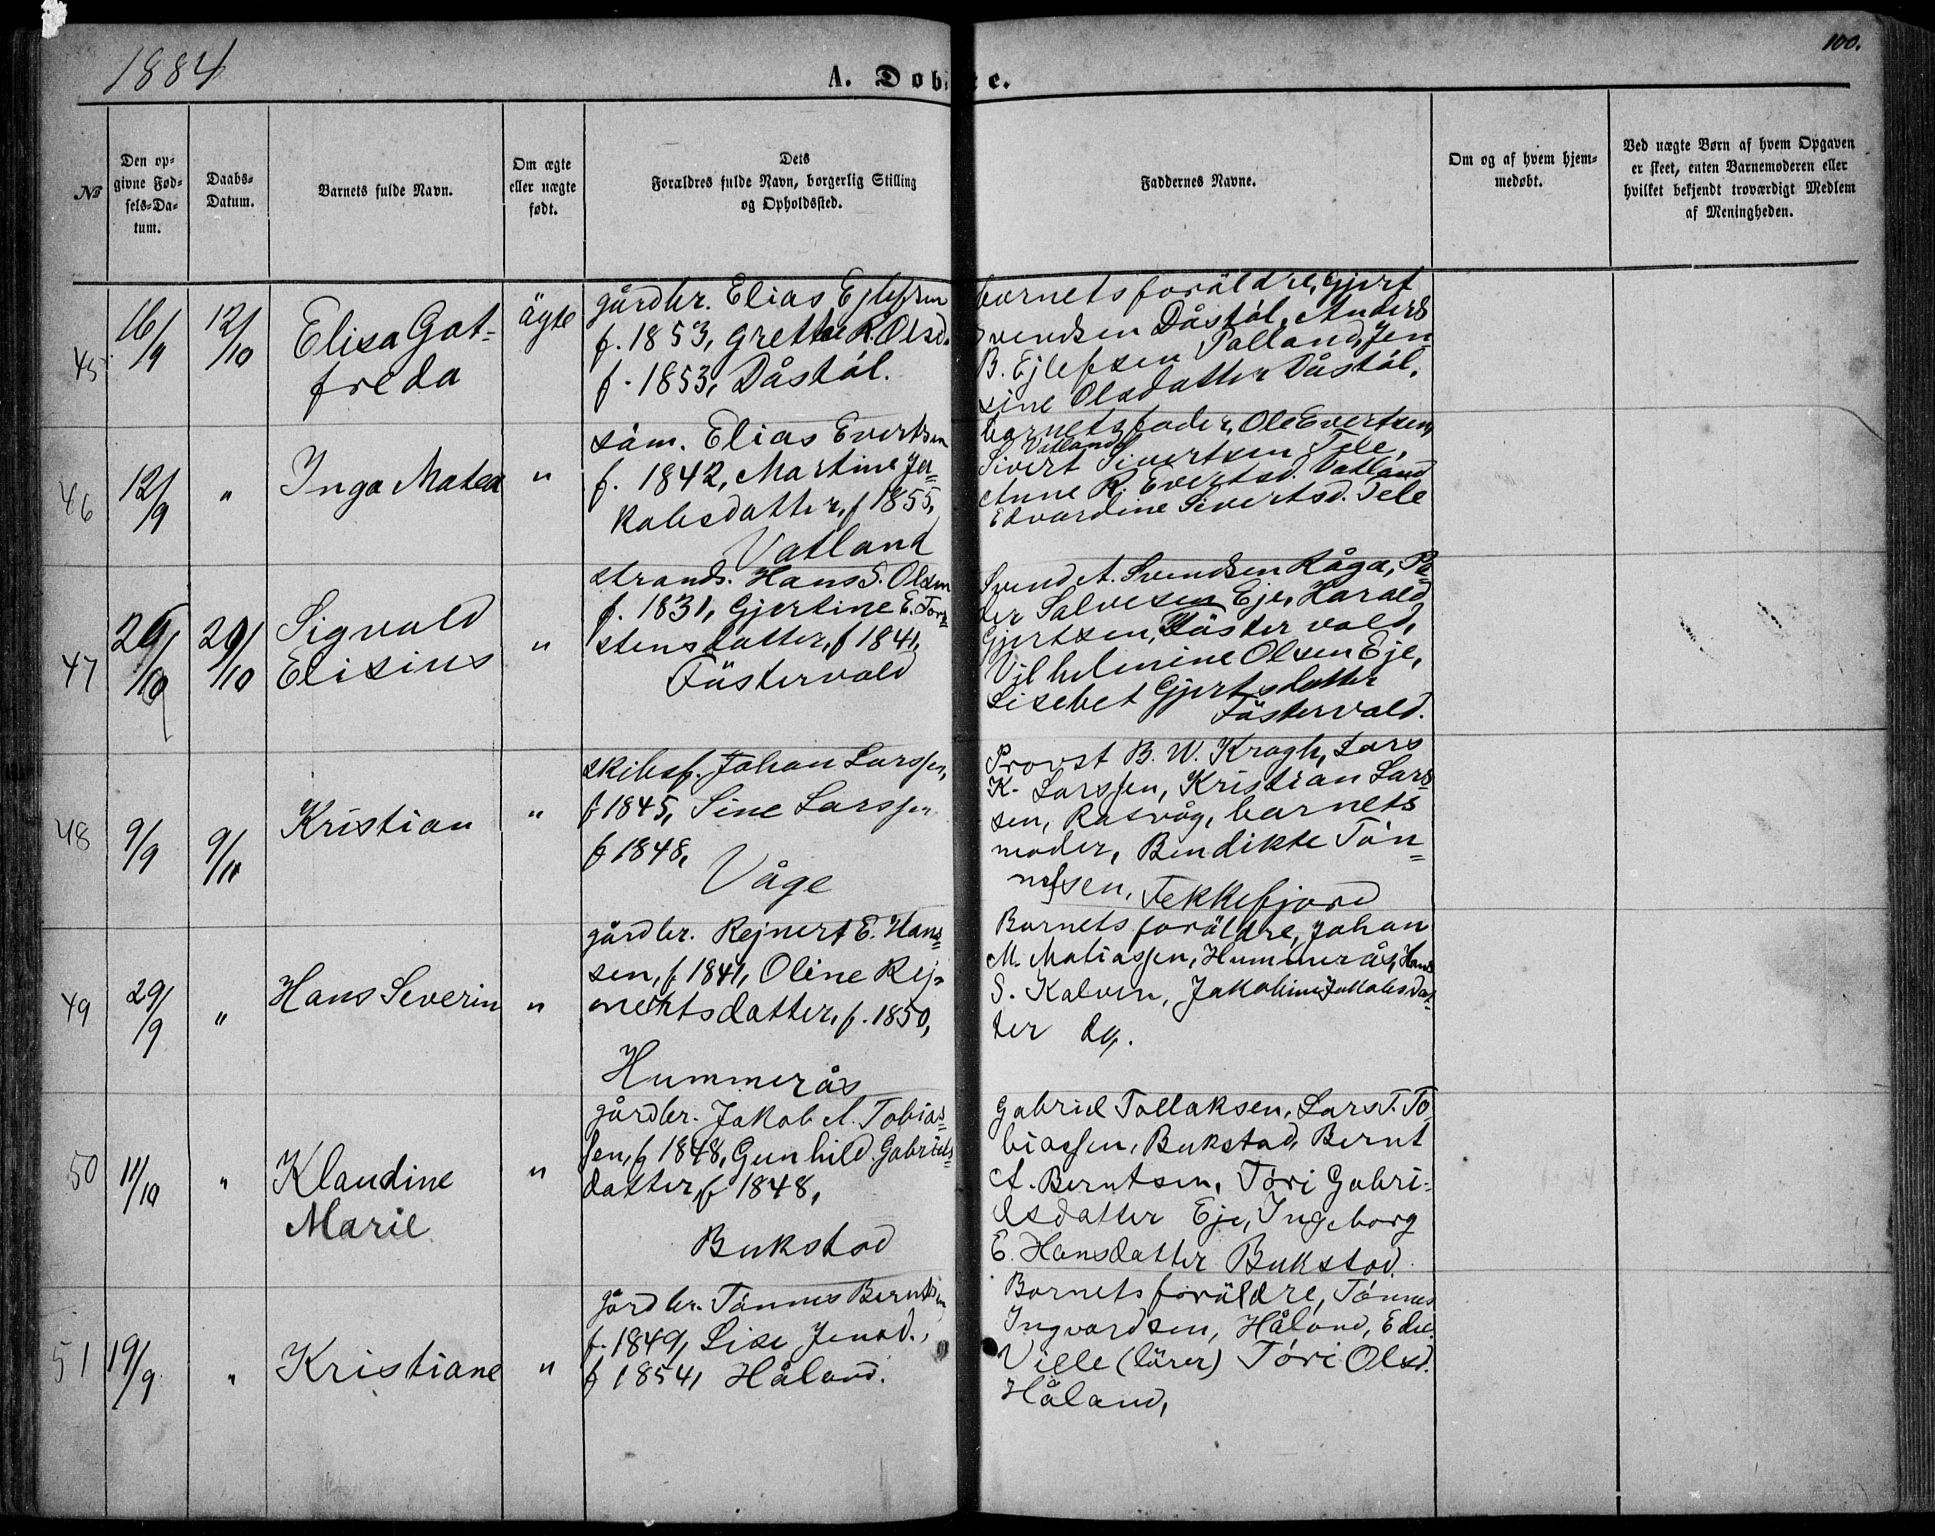 1884
A. Døb
e.
100.
No
Den op-
givne Fød-
sels-Da-
tum.
Daabs-
Datum.
Barnets fulde Navn.
Om ægte
eller uægte
født.
Dets
Forældres fulde Navn, borgerlig Stilling
og Opholdssted.
Faddernes Navne.
Om og af hvem hjem-
medøbt.
Ved uægte Børn af hvem Opgaven
er skeet, enten Barnemoderen eller
hvilket bekjendt troværdigt Medlem
af Menigheden.
45
16/9
12/10
Elisa Got-
freda
ägte
gårdbr. Elias Ejlefsen
f. 1853, Grethe R. Olsd.
f. 1853, Dåstöl.
barnets foräldre, Gjert
Svendsen Dåstöl, Anders
B. Ejlefsen Tolland, Jen-
sine Olsdatter Dåstöl.
46
12/9
"
Inga Matea
"
söm. Elias Evertsen
f. 1842, Martine Ja-
kobsdatter, f 1855,
Vatland
barnets fader, Ole Evertsen,
Vatland
Sivert Sivertsen Tele,
Anne R. Evertsd. Vatland
Edvardine Sivertsd. Tele
47
29/10
Sigvald
Elisius
"
strands. Hans S. Olsen
f. 1831, Gjertine E. Tor-
stensdatter, f 1841,
Füstervold
Svend A. Svendsen Råga, Pe-
der Salvesen Eje, Harald
Gjertsen, Füstervold,
Vilhelmine Olsen Eje,
Lisebet Gjertsdatter
Füstervold.
48
9/9
Kristian
"
skibsf. Johan Larssen,
f 1845, Sine Larssen
f 1848,
Våge
Provst B. W. Krogh, Lars
K. Larssen, Kristian Lars-
sen, Rasvåg, barnets
moder, Bendikte Tön-
nessen, Fekkefjord
49
29/9
"
Hans Severin
"
gårdbr. Rejnert E. Han-
sen, f 1841, Oline Rej-
nertsdatter, f. 1850,
Hummerås
Barnets foräldre, Johan
M. Matiassen, Hummerås, Hans
S. Kalven, Jakobine Jakobsdat-
ter dg.
50
11/10
"
Klaudine
Marie
"
gårdbr. Jakob A. Tobias-
sen, f 1848, Gunhild Gabriels-
datter, f 1848,
Bukstad
Gabriel Tollaksen, Lars T. To-
biassen, Bukstad, Bernt
A. Berntsen, Töri Gabri-
elsdatter Eje, Ingeborg
E. Hansdatter Bukstad.
51
19/9
"
Kristiane
"
gårdbr. Tönnes Berntsen
f. 1849, Lise Jensd.,
f 1854, Håland.
Barnets foräldre, Tönnes
Ingvardsen, Håland, Edu.
Ville (lärer) Töri Olsd.
Håland,